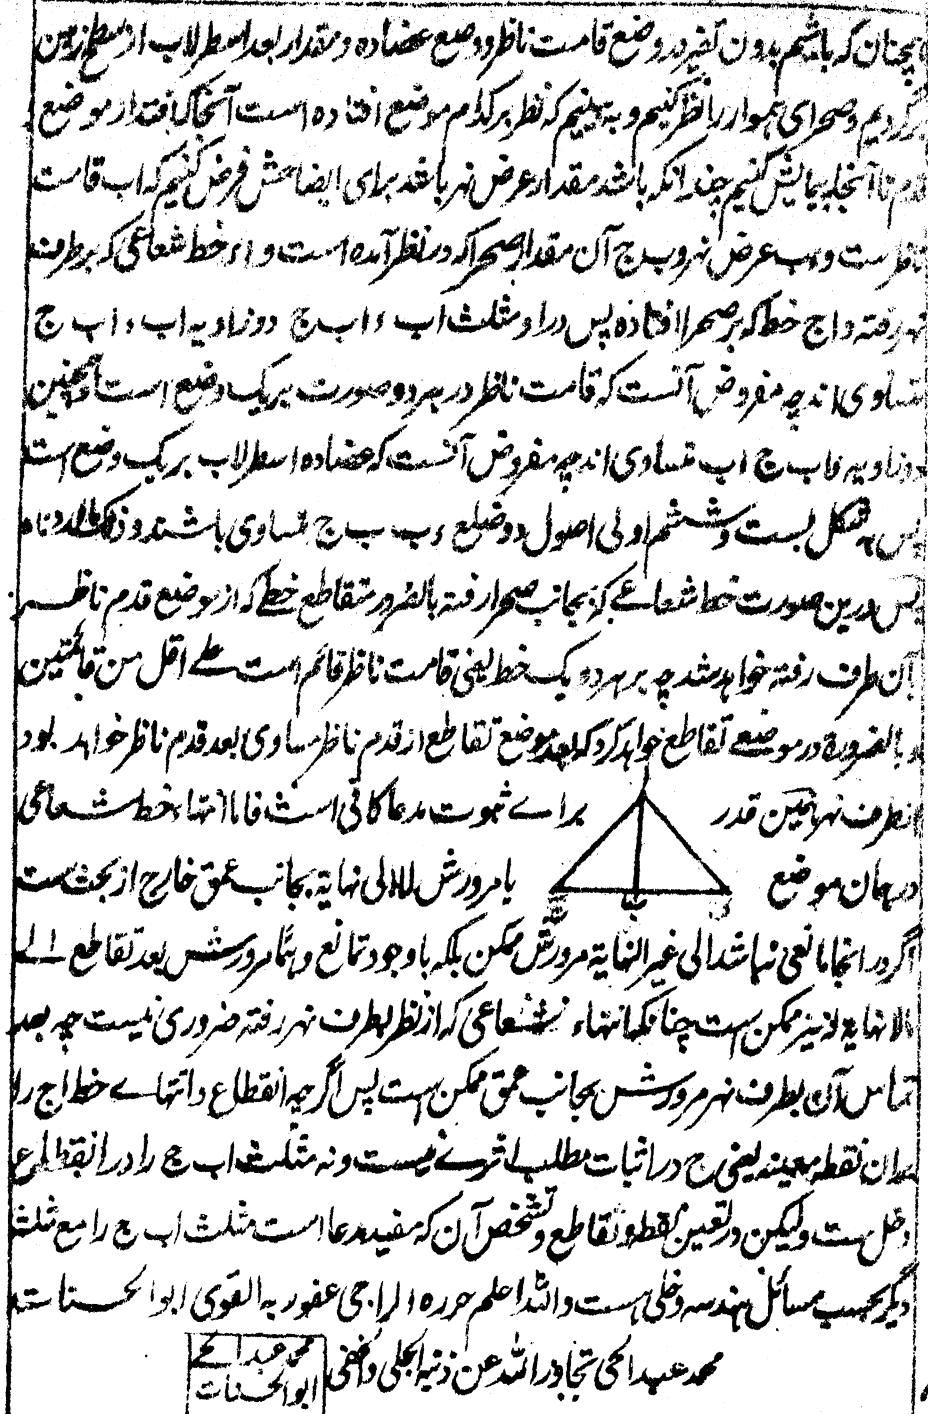 همچنان که باشیم بدون تغیر در وضع قامت ناظر و وضع عضاده و مقدار بعد اسطرلاب از سطح زمین
برگردیم و صحرای هموار را نظر کنیم و به بینیم که نظر بر کدام موضع افتاده است آنجا که افتد از موضع
قدم تا آنجا پیمایش کنیم چندانکه باشد مقدار عرض نهر باشد برای ایضاحش فرض کنیم که اب قامت
ناظر ست و ءب عرض نهر و ب ج آن مقدار صحرا که در نظر آمده است و اء خط شعاعی که بر طرف
نهر رفته و اج خط که بر صحرا افتاده پس در او مثلث اب ء اب ج دو زاویه اب ء اب ج
متساوی اند چه مفروض آنست که قامت ناظر در هر دو صورت بر یک وضع است و همچنین
دو زاویه ءاب ج اب متساوی اند چه مفروض آنست که عضاده اسطرلاب بر یک وضع است
پس به شکل بست و ششم اولی اصول دو ضلع ءب ب ج متساوی باشند و ذلک ما اردناه
پس درین صورت خط شعاعے که بجانب صحرا رفته بالضرور متقاطع خطے که از موضع قدم ناظر
بآن طرف رفته خواهد شد چه بر هر دو یک خط یعنی قامت ناظر قائم است علے اقل من قائمتین
و بالضرورة در موضعے تقاطع خواهد کرد که بعد موضع تقاطع از قدم ناظر مساوی بعد قدم ناظر خواهد بود
از طرف نهر همین قدر براے ثبوت مدعا کافی است فاما انتهاء خط شعاعی
در همان موضع یا مرورش الی لا نهایة بجانب عمق خارج از بحث ست
اگر در انجا مانعی نباشد الی غیر النهایة مرورش ممکن بلکه با وجود تمانع وهما مرورش بعد تقاطع الے
لا نهایة له نیز ممکن ست چنانکه انتهاء شعاعی که از نظر بطرف نهر رفته ضروری نیست چه بعد
تماس آن بطرف نهر مرورش بجانب عمق ممکن ست پس اگر چه انقطاع و انتهاے خط اج را
بران نقطه معینه یعنی ج در اثبات مطلب اثرے نیست و نه مثلث اب ج را در انقطاع
دخل ست و لیکن در تعین نقطه و تقاطع و تشخص آن که مفید مدعا است مثلث اب ج را مع مثلث
دیگر بحسب مسائل هندسه دخلی هست والله اعلم حرره الراجی عفو ربه القوی ابو الحسنات
محمد عبد الحی تجاوز الله عن ذنبه الجلی والخفی
محمد عبد الحے
ابو الحسنات
ا
ء
ب
ج